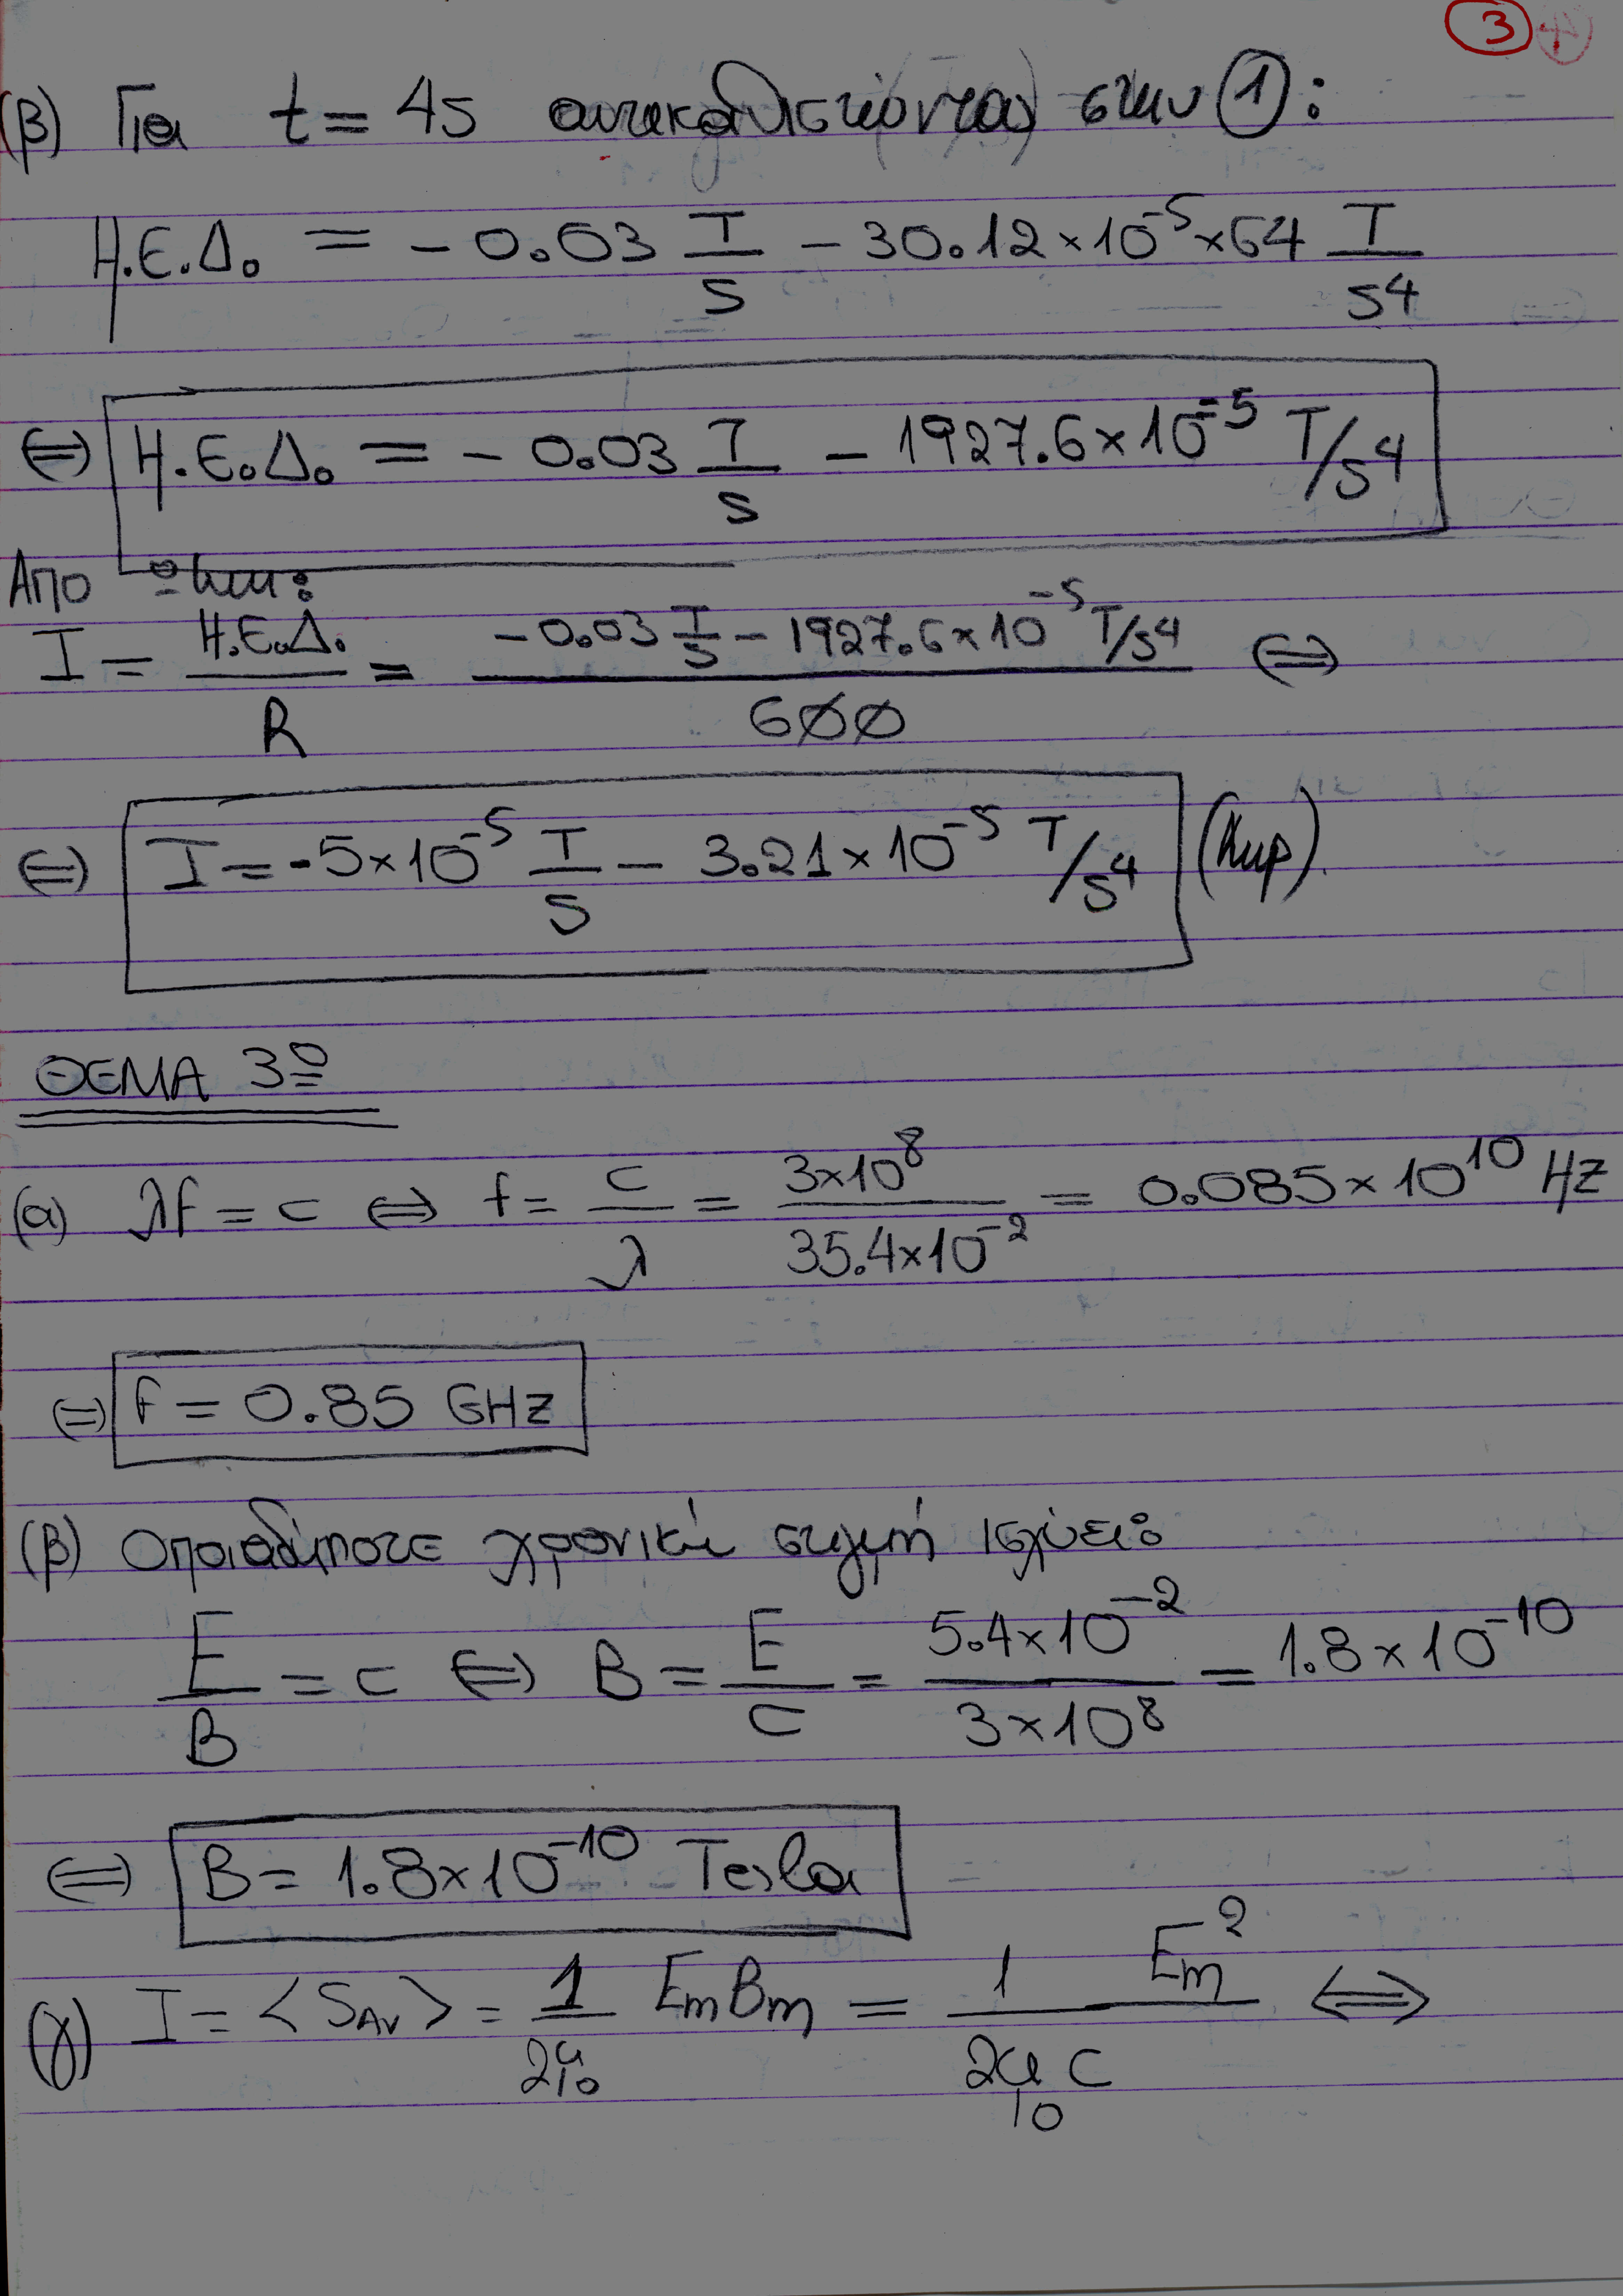 3
(β) Για t = 4s αντικαθιστώντας στην ①:
Η.Ε.Δ. = - 0.03 T/s - 30.12×10⁻⁵×64 T/s⁴
⇔ Η.Ε.Δ. = - 0.03 T/s - 1927.6×10⁻⁵ T/s⁴
Απο όπου:
I = Η.Ε.Δ./R = (-0.03 T/s - 1927.6×10⁻⁵ T/s⁴)/600 ⇔
⇔ I = -5×10⁻⁵ T/s - 3.21×10⁻⁵ T/s⁴ (Amp).
ΘΕΜΑ 3º
(α) λf = c ⇔ f = c/λ = 3×10⁸/35.4×10⁻² = 0.085×10¹⁰ Hz
⇔ f = 0.85 GHz
(β) Οποιαδήποτε χρονική στιγμή ισχύει:
E/B = c ⇔ B = E/c = 5.4×10⁻²/3×10⁸ = 1.8×10⁻¹⁰
⇔ B = 1.8×10⁻¹⁰ Tesla
(γ) I = <S_AV> = 1/2μ₀ EmBm = 1/2μ₀ Em²/c ⇔